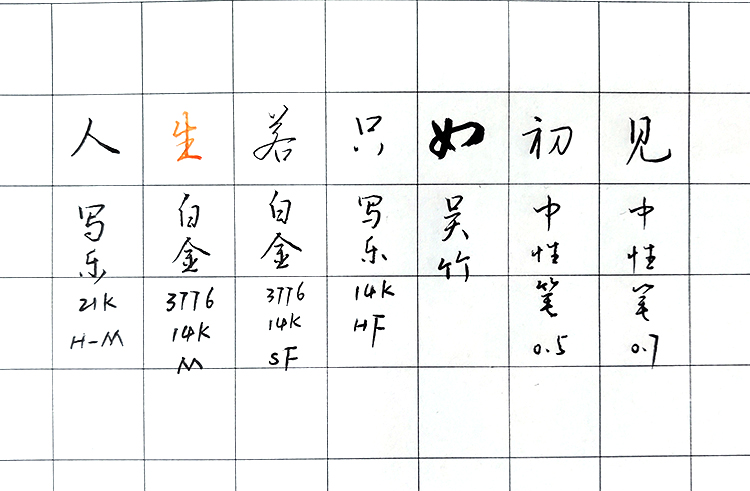 人生若只如初见
写乐 21K H-M
白金 3776 14K M
白金 3776 14K SF
写乐 14K HF
吴竹
中性笔 0.5
中性笔 0.7